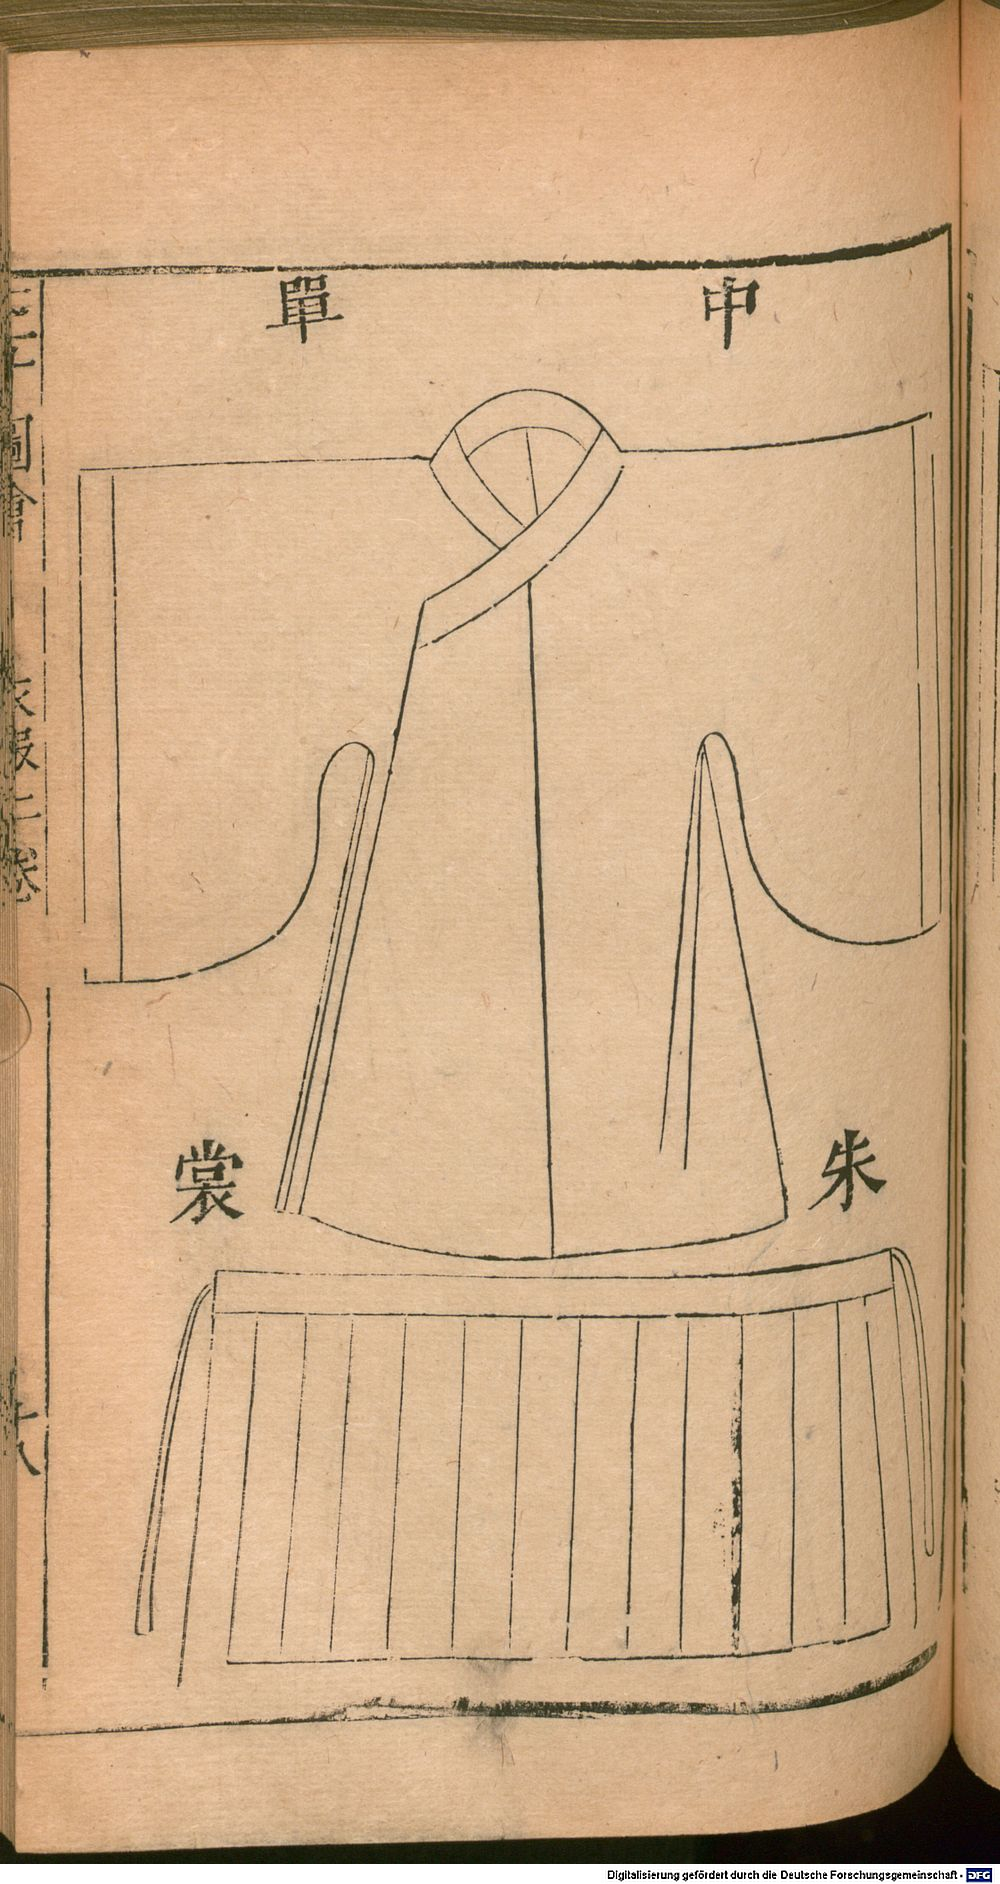 中單
朱裳
圖會 衣服二卷
十八
Digitalisierung gefördert durch die Deutsche Forschungsgemeinschaft - DFG